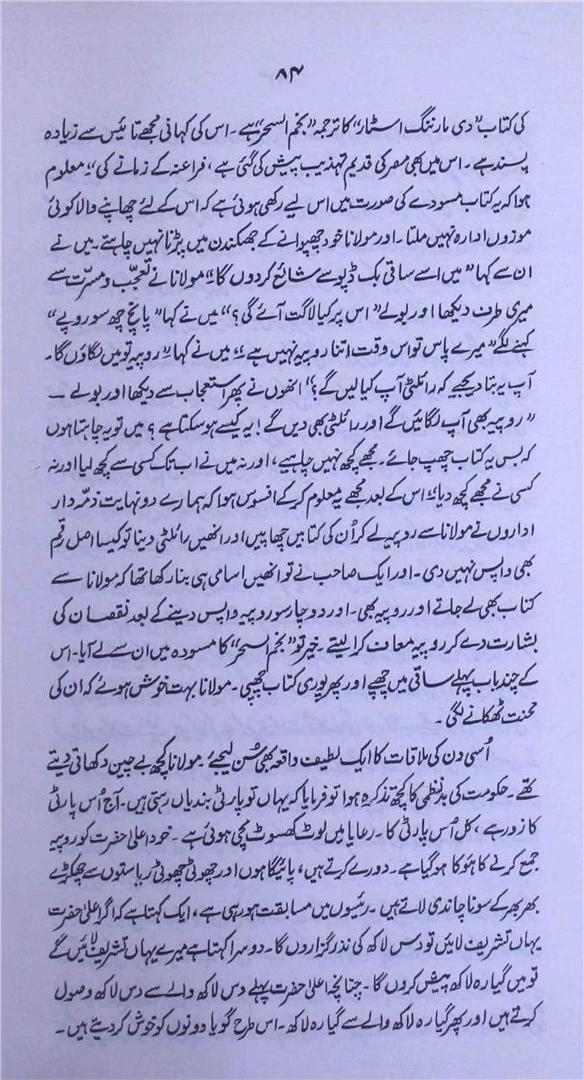 ۸۴
کی کتاب "دی مارننگ اسٹار" کا ترجمہ "نجم السحر" ہے۔ اس کی کہانی مجھے تائیس سے زیادہ
پسند ہے۔ اس میں بھی مصر کی قدیم تہذیب پیش کی گئی ہے، فراعنہ کے زمانے کی" معلوم
ہوا کہ یہ کتاب مسودے کی صورت میں اس لیے رکھی ہوئی ہے کہ اس کے لئے چھاپنے والا کوئی
موزوں ادارہ نہیں ملتا۔ اور مولانا خود چھپوانے کے جھکندن میں پڑنا نہیں چاہتے۔ میں نے
ان سے کہا "میں اسے ساقی بک ڈپو سے شائع کردوں گا" مولانا نے تعجب و مسرّت سے
میری طرف دیکھا اور بولے "اس پر کیا لاگت آئے گی؟" میں نے کہا "پانچ چھ سو روپے"
کہنے لگے "میرے پاس تو اس وقت اتنا روپیہ نہیں ہے" میں نے کہا "روپیہ تو میں لگاؤں گا۔
آپ یہ بتا دیجیے کہ رائلٹی آپ کیا لیں گے؟" انھوں نے پھر استعجاب سے دیکھا اور بولے —
"روپیہ بھی آپ لگائیں گے اور رائلٹی بھی دیں گے! یہ کیسے ہوسکتا ہے؟ میں تو یہ چاہتا ہوں
کہ بس یہ کتاب چھپ جائے۔ مجھے کچھ نہیں چاہیے، اور نہ میں نے اب تک کسی سے کچھ لیا اور نہ
کسی نے مجھے کچھ دیا" اس کے بعد مجھے یہ معلوم کرکے افسوس ہوا کہ ہمارے دو نہایت ذمّہ دار
اداروں نے مولانا سے روپیہ لے کر اُن کی کتابیں چھاپیں اور انھیں رائلٹی دینا تو کیسا اصل رقم
بھی واپس نہیں دی۔ اور ایک صاحب نے تو انھیں اسامی ہی بنا رکھا تھا کہ مولانا سے
کتاب بھی لے جاتے اور روپیہ بھی۔ اور دو چار سو روپیہ واپس دینے کے بعد نقصان کی
بشارت دے کر روپیہ معاف کرا لیتے۔ خیر تو "نجم السحر" کا مسودہ میں ان سے لے آیا۔ اس
کے چند باب پہلے ساقی میں چھپے اور پھر پوری کتاب چھپی۔ مولانا بہت خوش ہوئے کہ ان کی
محنت ٹھکانے لگی۔
اُسی دن کی ملاقات کا ایک لطیف واقعہ بھی سُن لیجے۔ مولانا کچھ بے چین دکھائی دیتے
تھے۔ حکومت کی بدنظمی کا کچھ تذکرہ ہوا تو فرمایا کہ یہاں تو پارٹی بندیاں رہتی ہیں۔ آج اُس پارٹی
کا زور ہے، کل اُس پارٹی کا۔ رعایا میں لوٹ کھسوٹ مچی ہوئی ہے۔ خود اعلیٰ حضرت کو روپیہ
جمع کرنے کا ہوکا ہوگیا ہے۔ دورے کرتے ہیں، پائیگاہوں اور چھوٹی چھوٹی ریاستوں سے چھکڑے
بھر بھر کے سونا چاندی لاتے ہیں۔ رئیسوں میں مسابقت ہو رہی ہے، ایک کہتا ہے کہ اگر اعلیٰ حضرت
یہاں تشریف لائیں تو دس لاکھ کی نذر گزاروں گا۔ دوسرا کہتا ہے میرے یہاں تشریف لائیں گے
تو میں گیارہ لاکھ پیش کروں گا۔ چنانچہ اعلیٰ حضرت پہلے دس لاکھ والے سے دس لاکھ وصول
کرتے ہیں اور پھر گیارہ لاکھ والے سے گیارہ لاکھ۔ اس طرح گویا دونوں کو خوش کر دیتے ہیں۔